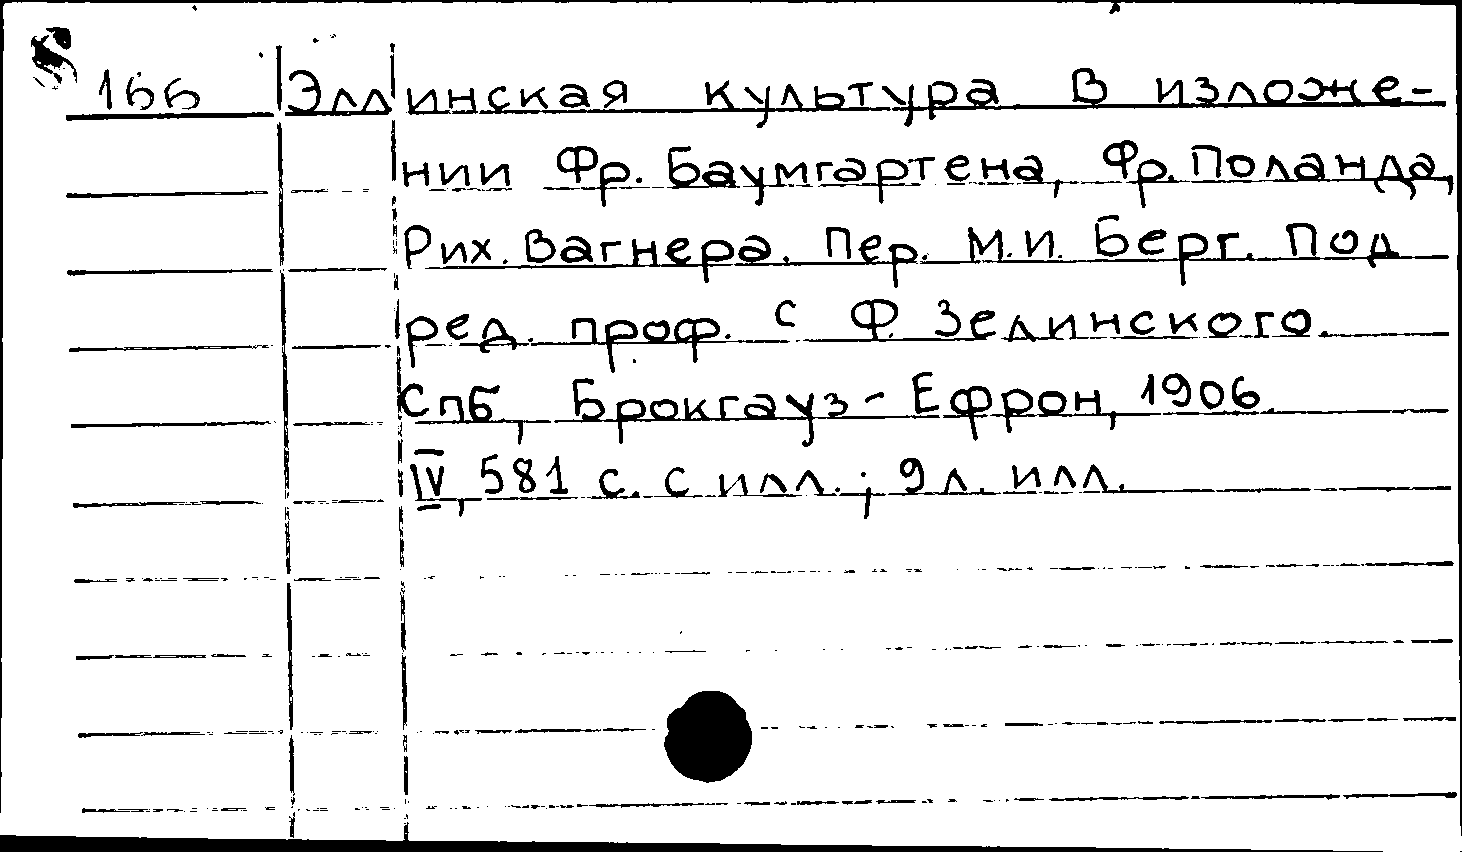 166 Эллинская культура в изложе-
нии Фр. Баумгартена, Фр. Поланда,
Рих. Вагнера. Пер. М.И. Берг. Под
ред. проф. С Ф. Зелинского.
Спб, Брокгауз - Ефрон, 1906.
IV, 581 с. с илл.; 9 л. илл.